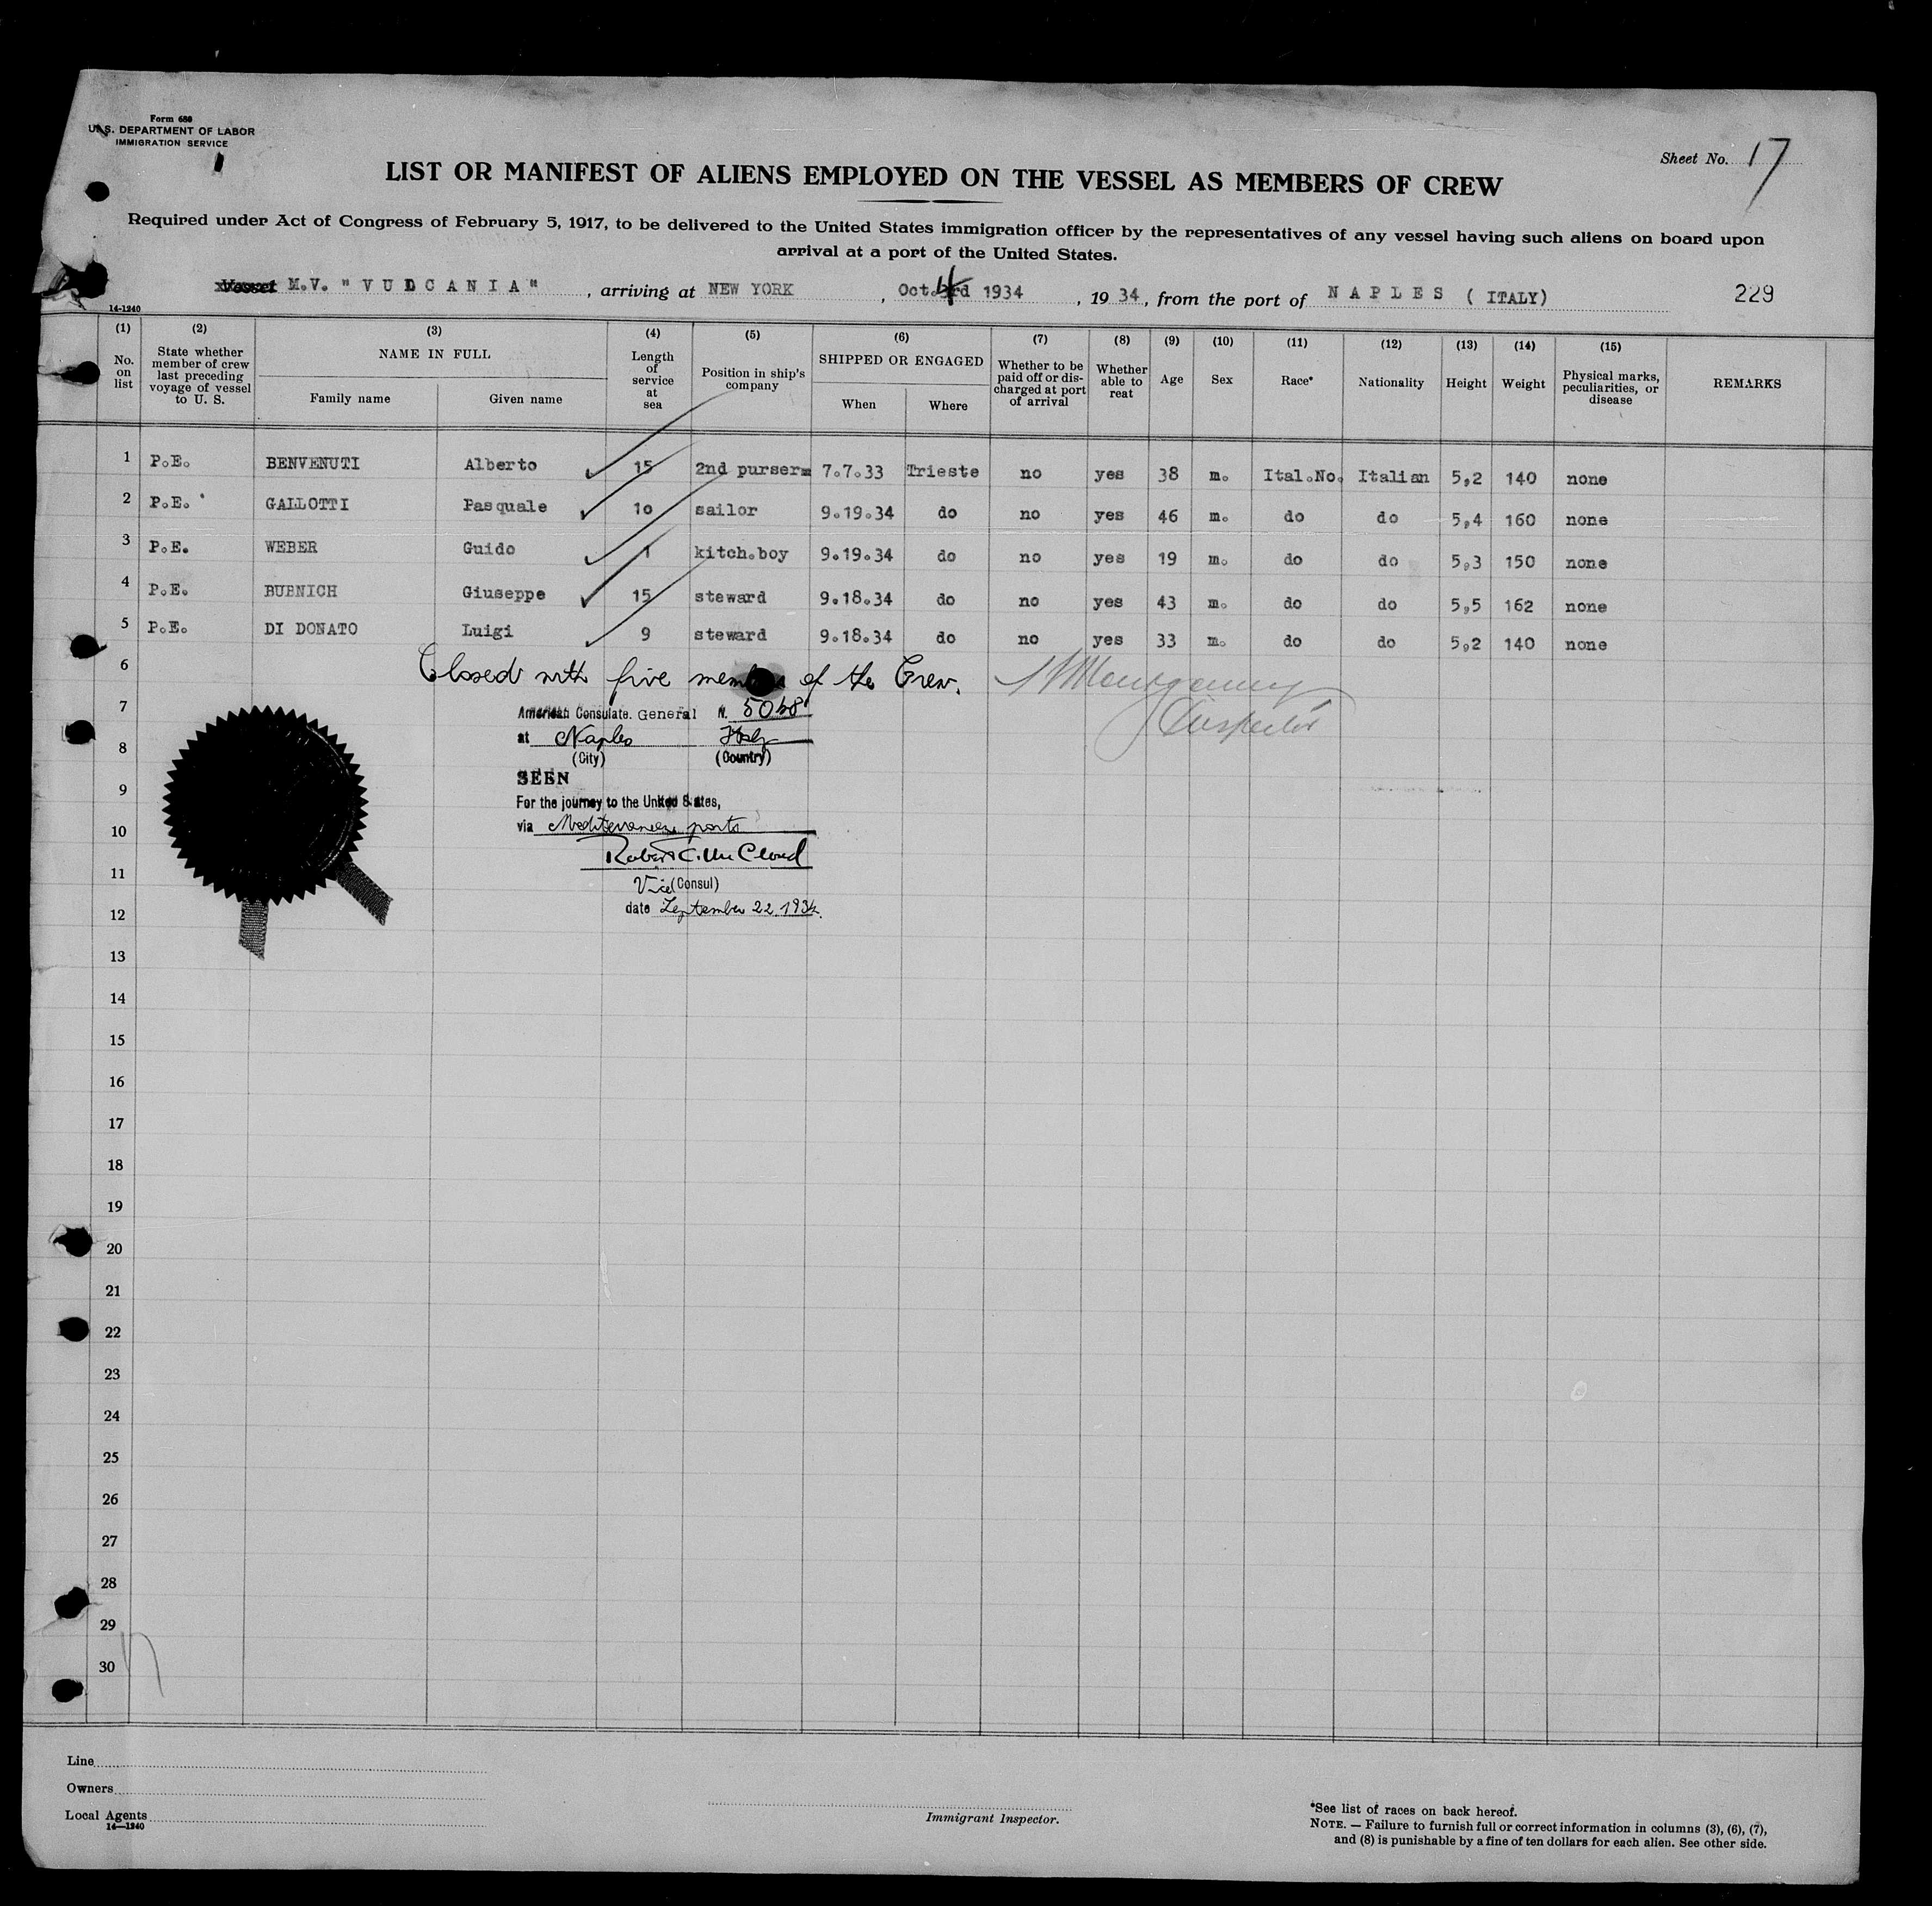 Form 680
U. S. DEPARTMENT OF LABOR
IMMIGRATION SERVICE
Sheet No. 17
LIST OR MANIFEST OF ALIENS EMPLOYED ON THE VESSEL AS MEMBERS OF CREW
Required under Act of Congress of February 5, 1917, to be delivered to the United States immigration officer by the representatives of any vessel having such aliens on board upon
arrival at a port of the United States.
Vessel M.V. "VUDCANIA", arriving at NEW YORK, Oct. 4 1934, 1934, from the port of NAPLES (ITALY) 229
14-1240
(1) No. on list
(2) State whether member of crew last preceding voyage of vessel to U. S.
(3) NAME IN FULL
Family name Given name
(4) Length of service at sea
(5) Position in ship's company
(6) SHIPPED OR ENGAGED
When Where
(7) Whether to be paid off or discharged at port of arrival
(8) Whether able to reat
(9) Age
(10) Sex
(11) Race*
(12) Nationality
(13) Height
(14) Weight
(15) Physical marks, peculiarities, or disease
REMARKS
1 P.E. BENVENUTI Alberto 15 2nd purser 7.7.33 Trieste no yes 38 m. Ital.No. Italian 5,2 140 none
2 P.E. GALLOTTI Pasquale 10 sailor 9.19.34 do no yes 46 m. do do 5,4 160 none
3 P.E. WEBER Guido 1 kitch.boy 9.19.34 do no yes 19 m. do do 5,3 150 none
4 P.E. BUBNICH Giuseppe 15 steward 9.18.34 do no yes 43 m. do do 5,5 162 none
5 P.E. DI DONATO Luigi 9 steward 9.18.34 do no yes 33 m. do do 5,2 140 none
6 Closed with five members of the Crew. Montgomery
7 American Consulate. General N. Inspector
8 at Naples Italy
(City) (Country)
9 SEEN
For the journey to the United States,
10 via Mediterranean ports
11 Robert C. McCloud
Vice (Consul)
12 date September 22, 1934.
13
14
15
16
17
18
19
20
21
22
23
24
25
26
27
28
29
30
Line
Owners
Local Agents
14—1240
Immigrant Inspector.
*See list of races on back hereof.
NOTE. — Failure to furnish full or correct information in columns (3), (6), (7),
and (8) is punishable by a fine of ten dollars for each alien. See other side.